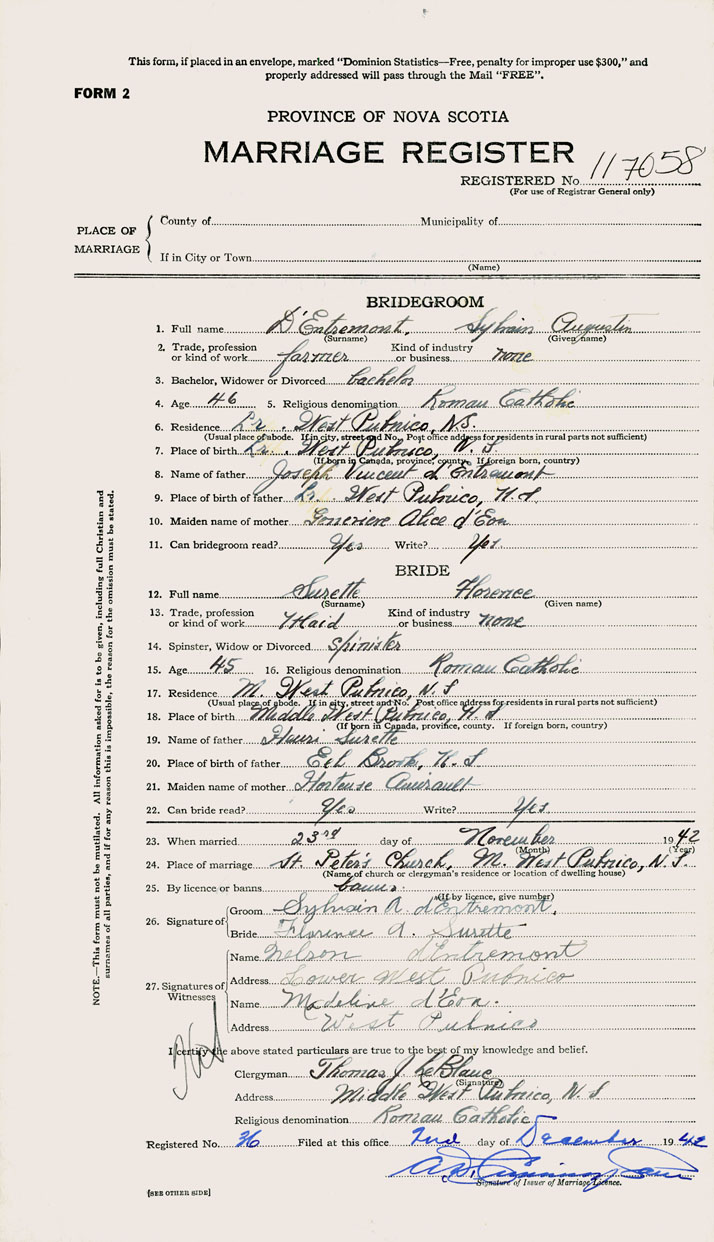 This form, if placed in an envelope, marked "Dominion Statistics—Free, penalty for improper use $300," and
properly addressed will pass through the Mail "FREE".
FORM 2
PROVINCE OF NOVA SCOTIA
MARRIAGE REGISTER
REGISTERED No. 117058
(For use of Registrar General only)
PLACE OF MARRIAGE
County of Municipality of
If in City or Town
(Name)
BRIDEGROOM
1. Full name D'Entremont, Sylvain Augustin
(Surname) (Given name)
2. Trade, profession or kind of work farmer Kind of industry or business none
3. Bachelor, Widower or Divorced bachelor
4. Age 46 5. Religious denomination Roman Catholic
6. Residence Lr. West Pubnico, N.S.
(Usual place of abode. If in city, street and No. Post office address for residents in rural parts not sufficient)
7. Place of birth Lr. West Pubnico, N. S
(If born in Canada, province, county. If foreign born, country)
8. Name of father Joseph Vincent d'Entremont
9. Place of birth of father Lr. West Pubnico, N. S.
10. Maiden name of mother Genevieve Alice d'Eon
11. Can bridegroom read? Yes Write? Yes
BRIDE
12. Full name Surette Florence
(Surname) (Given name)
13. Trade, profession or kind of work Maid Kind of industry or business none
14. Spinster, Widow or Divorced spinister
15. Age 45 16. Religious denomination Roman Catholic
17. Residence M. West Pubnico, N. S
(Usual place of abode. If in city, street and No. Post office address for residents in rural parts not sufficient)
18. Place of birth Middle West Pubnico, N. S
(If born in Canada, province, county. If foreign born, country)
19. Name of father Henri Surette
20. Place of birth of father Eel Brook, N. S.
21. Maiden name of mother Hortense Amirault
22. Can bride read? Yes Write? Yes.
23. When married 23rd day of November 1942
(Month) (Year)
24. Place of marriage St. Peter's Church, M. West Pubnico, N. S
(Name of church or clergyman's residence or location of dwelling house)
25. By licence or banns banns
(If by licence, give number)
26. Signature of
Groom Sylvain A. d'Entremont,
Bride Florence A. Surette
27. Signatures of Witnesses
Name Nelson d'Entremont
Address Lower West Pubnico
Name Madeline d'Eon.
Address West Pubnico
I certify the above stated particulars are true to the best of my knowledge and belief.
Clergyman Thomas J. LeBlanc
(Signature)
Address Middle West Pubnico, N. S
Religious denomination Roman Catholic
Registered No. 36 Filed at this office 2nd day of December 1942
Signature of Issuer of Marriage Licence.
[SEE OTHER SIDE]
NOTE.—This form must not be mutilated. All information asked for is to be given, including full Christian and
surnames of all parties, and if for any reason this is impossible, the reason for the omission must be stated.